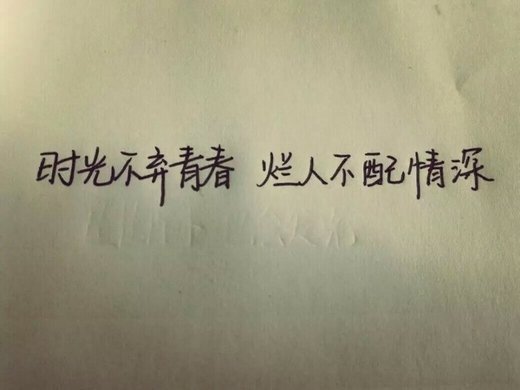 时光不弃青春 烂人不配情深